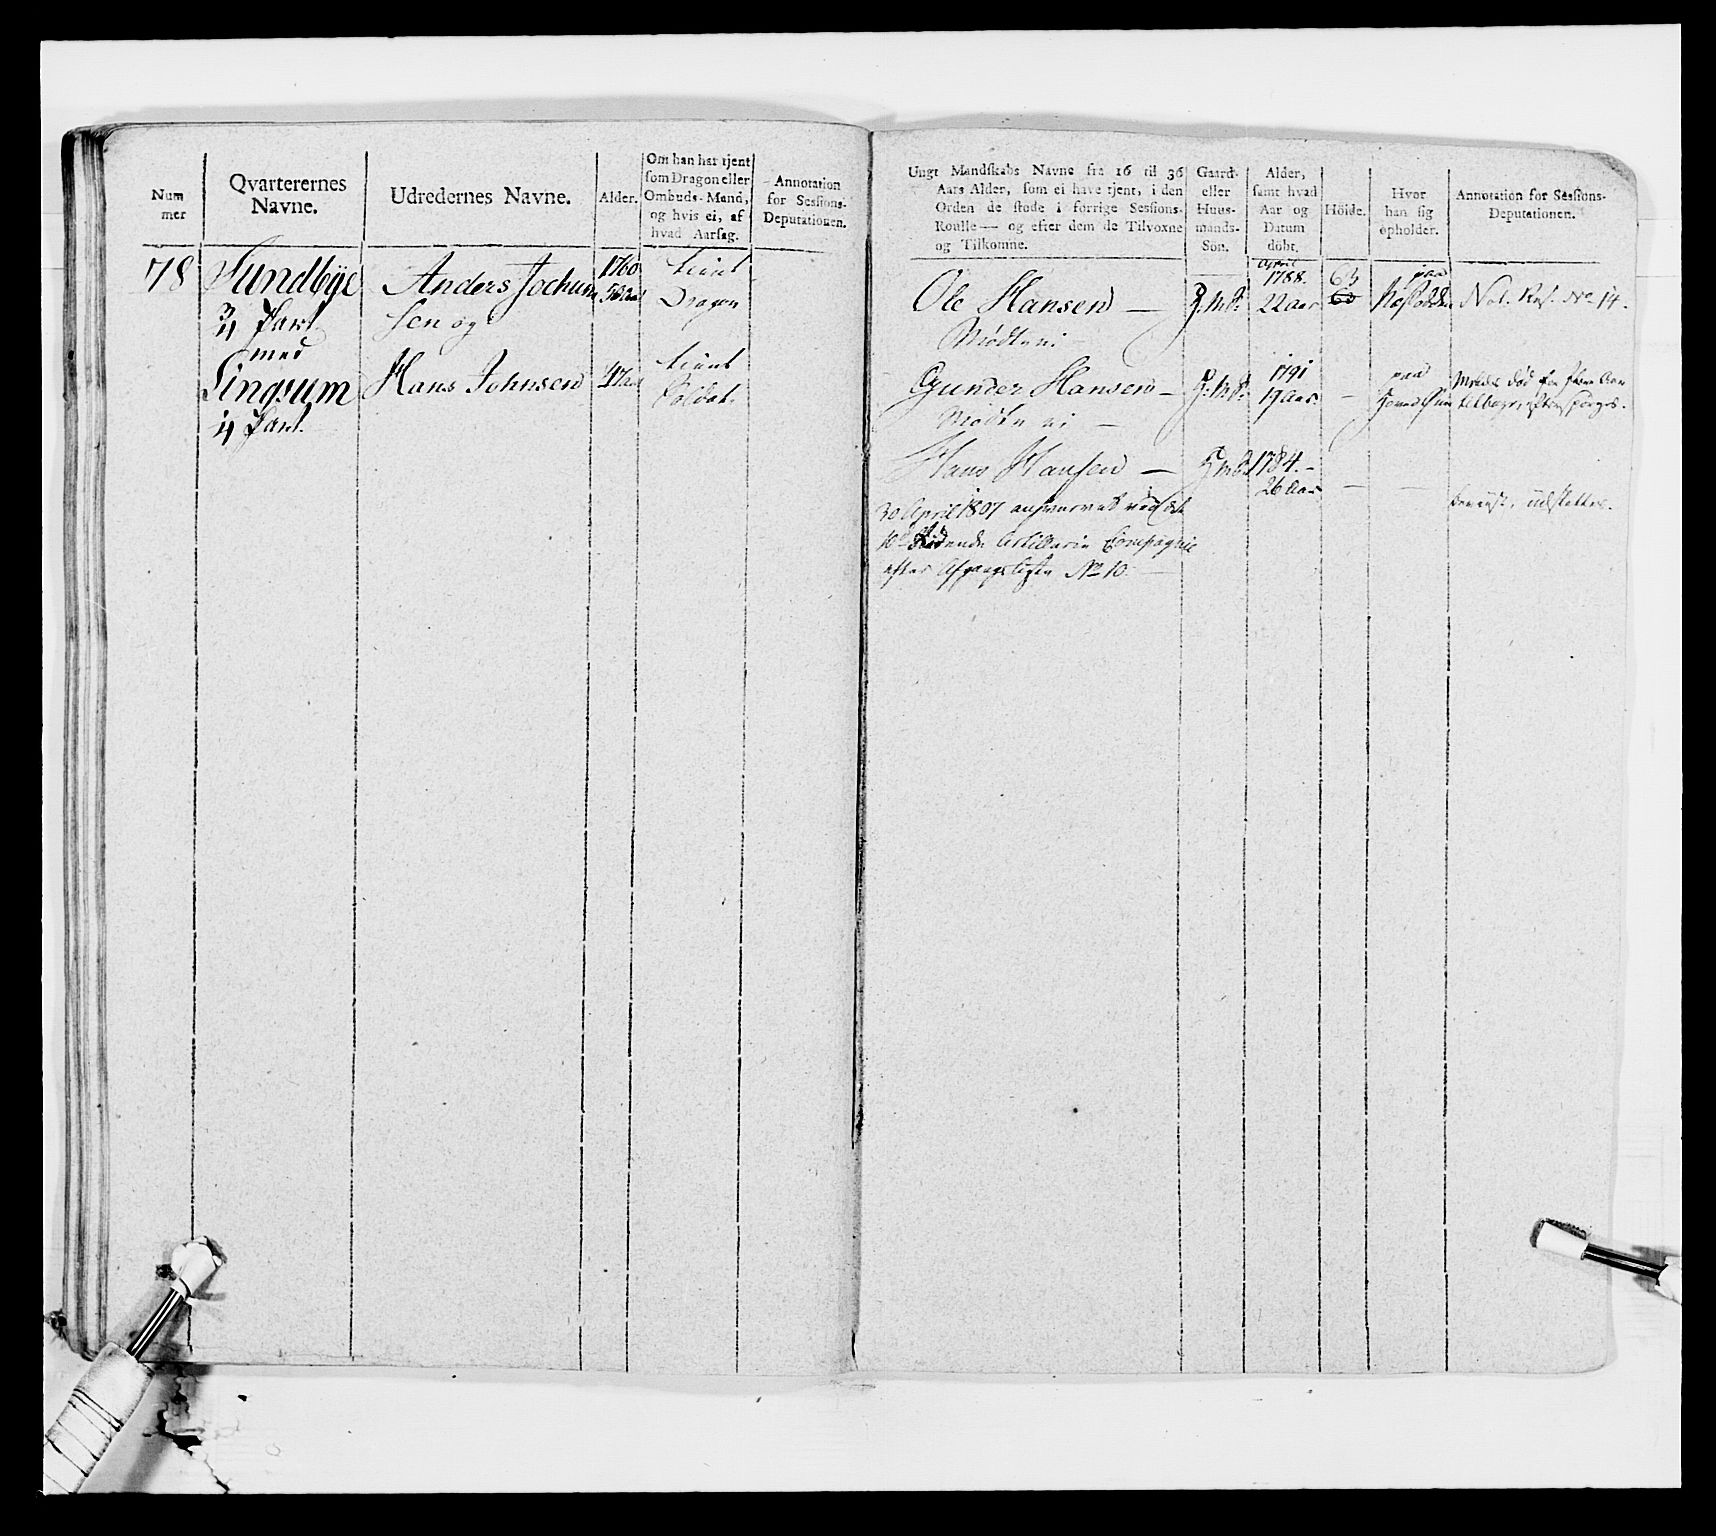 Num
mer
Qvarterernes
Navne.
Udredernes Navne.
Alder.
Om han har tjent
som Dragon eller
Ombuds-Mand,
og hvis ei, af
hvad Aarsag.
Annotation
for Sessions-
Deputationen.
78
Sundbye
3/4 Part
med
Lingsum
1/4 Part.
Anders Jochum
sen og
Hans Johnsen
1760
tient
Dragon
tient
Soldat.
Ungt Mandskabs Navne fra 16 til 36
Aars Alder, som ei have tjent, i den
Orden de stode i forrige Sessions-
Roulle — og efter dem de Tilvoxne
og Tilkomne.
Gaard-
eller
Huus-
mands-
Sön.
Alder,
samt hvad
Aar og
Datum
döbt.
Höide.
Hvor
han sig
opholder.
Annotation for Sessions-
Deputationen.
Ole Hansen —
Mødte ei
April
1788.
22 Aar
63
paa
Not. Res. No 14.
Gunder Hansen —
Mødte ei —
1791
19 Aar.
—
paa
Hans Hansen —
1784. —
26 Aar
—
—
30 April 1807
ridende Artillerie Compagnie
efter Afgangsliste No 10. —